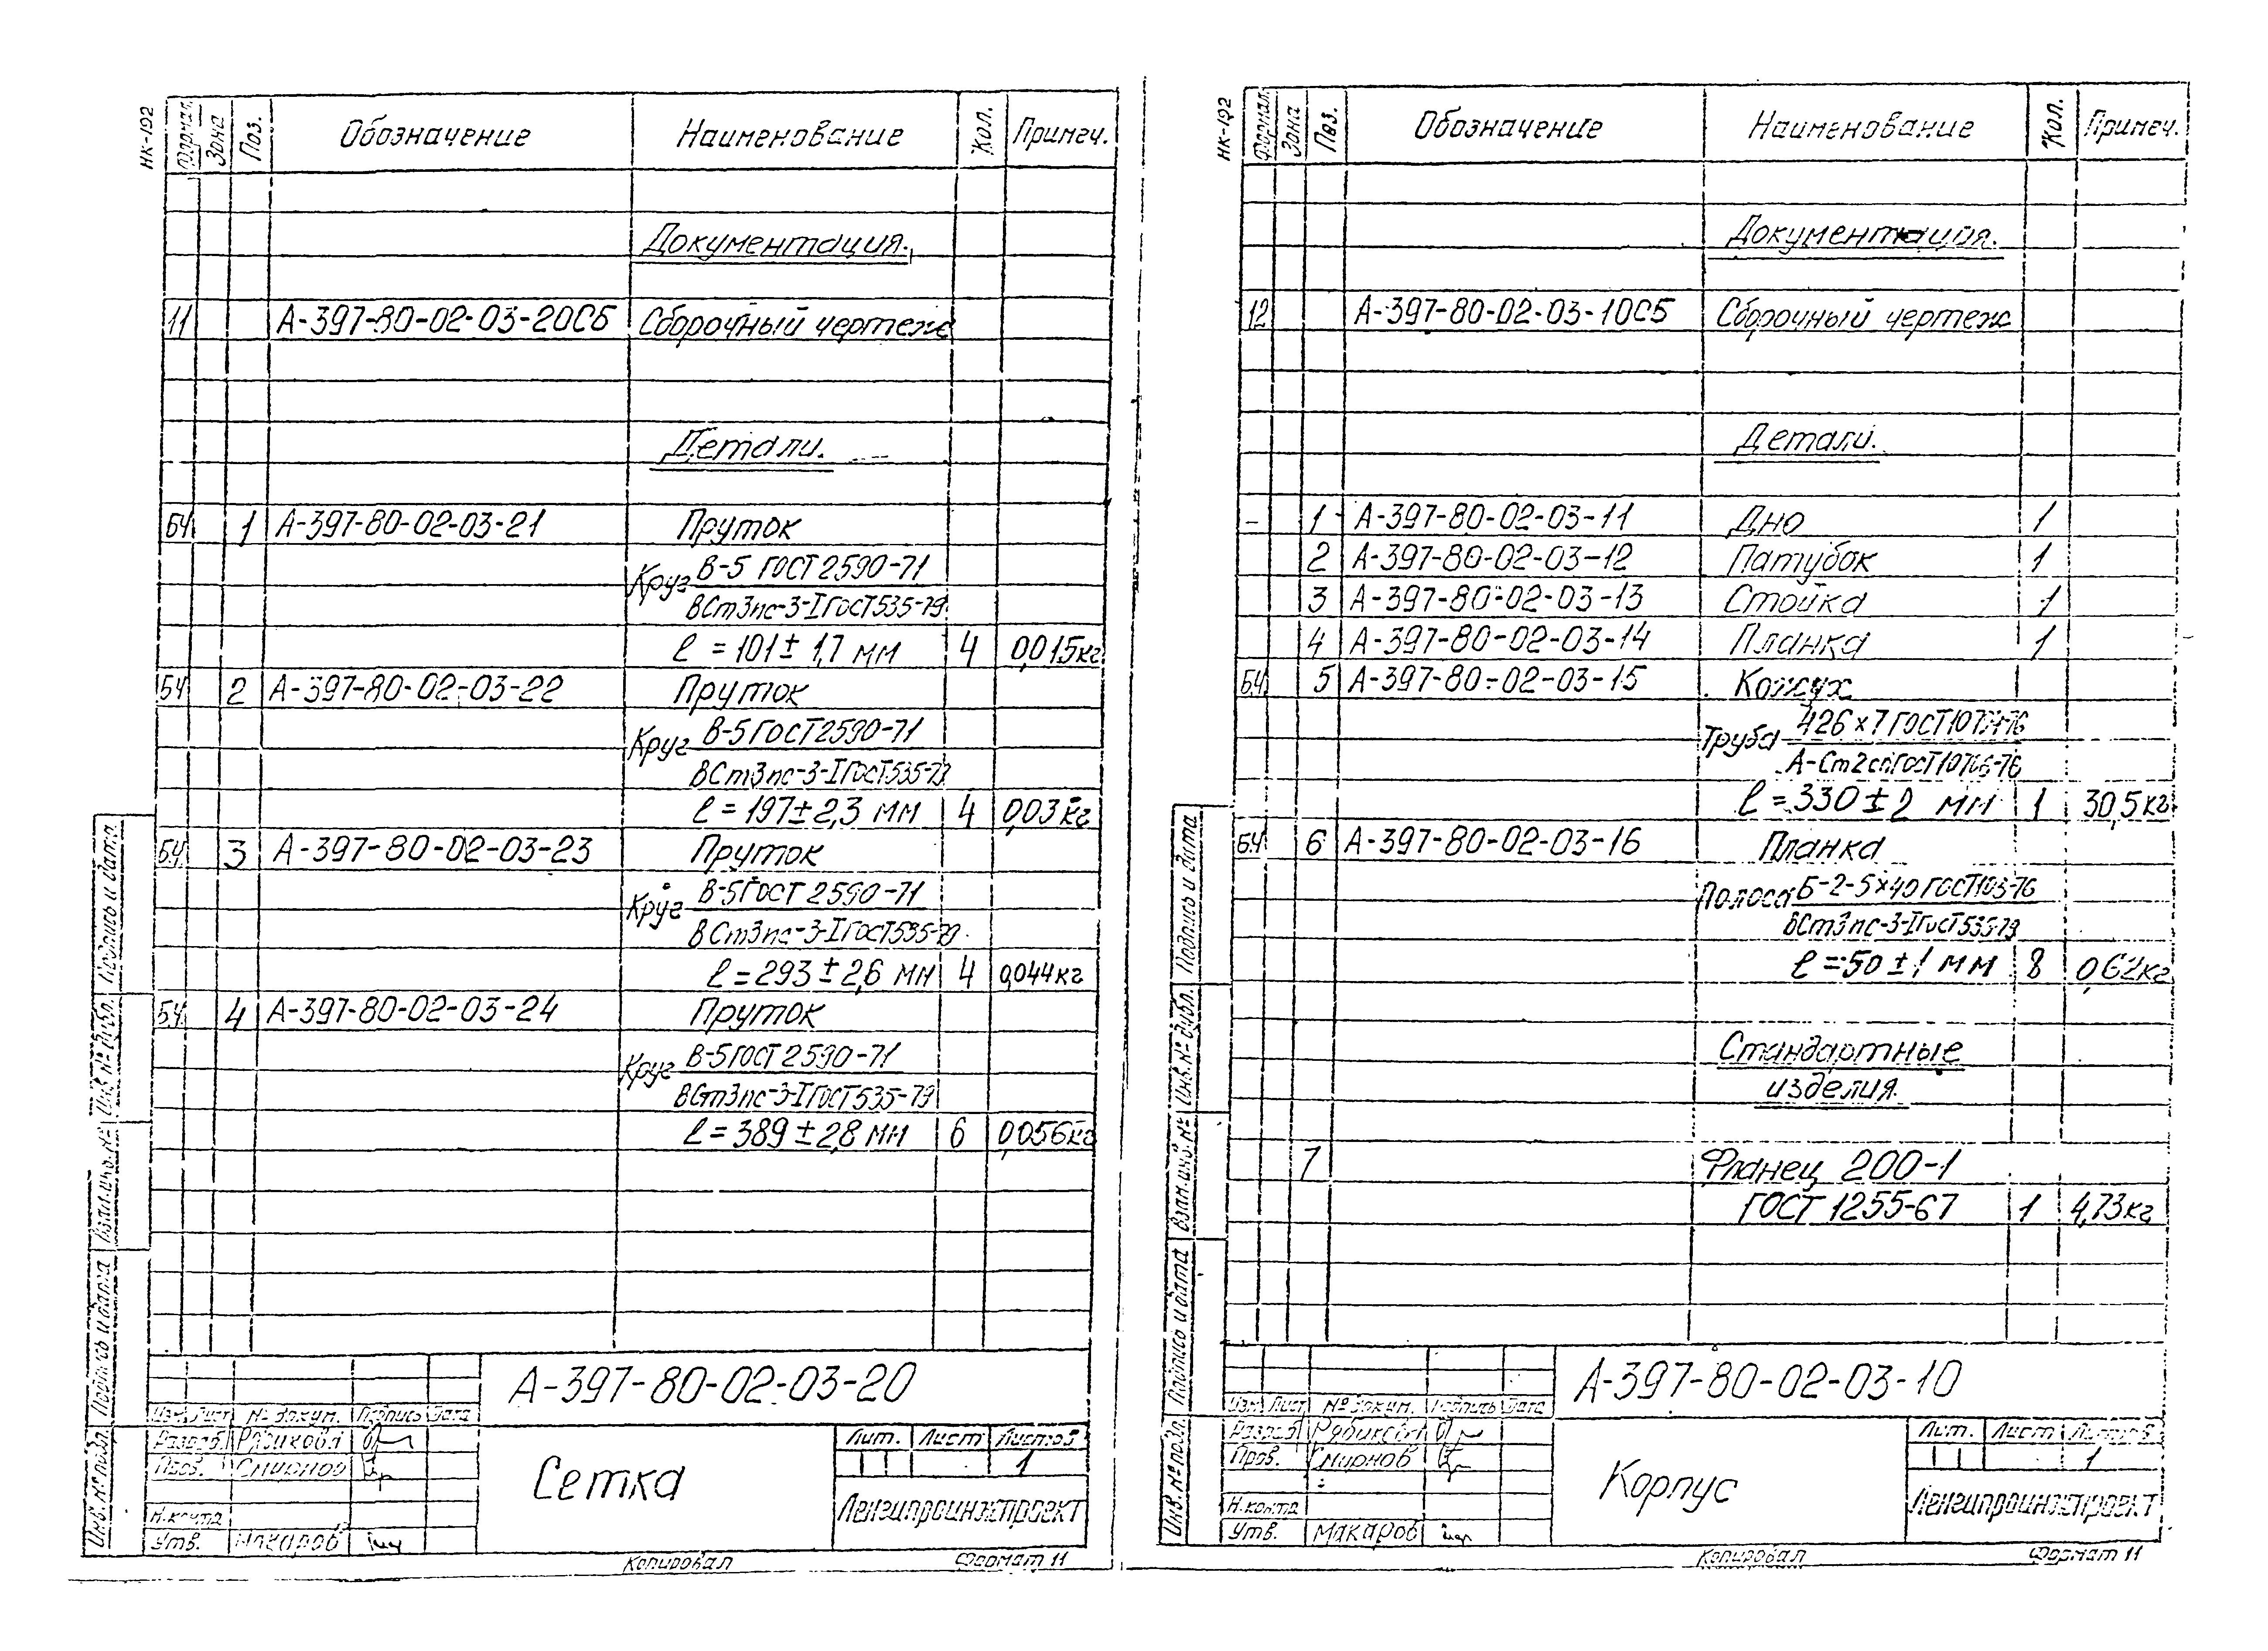 НК-192
Формат. Зона Поз. Обозначение Наименование Кол. Примеч.
Документация.
11 А-397-80-02-03-20СБ Сборочный чертеж
Детали.
БЧ 1 А-397-80-02-03-21 Пруток
Круг В-5 ГОСТ 2590-71
ВСт3пс-3-I ГОСТ 535-79
l = 101 ± 1,7 мм 4 0,015кг
БЧ 2 А-397-80-02-03-22 Пруток
Круг В-5 ГОСТ 2590-71
ВСт3пс-3-I ГОСТ 535-79
l = 197 ± 2,3 мм 4 0,03кг
БЧ 3 А-397-80-02-03-23 Пруток
Круг В-5 ГОСТ 2590-71
ВСт3пс-3-I ГОСТ 535-79
l = 293 ± 2,6 мм 4 0,044кг
БЧ 4 А-397-80-02-03-24 Пруток
Круг В-5 ГОСТ 2590-71
ВСт3пс-3-I ГОСТ 535-79
l = 389 ± 2,8 мм 6 0,056кг
Инв. № подл. Подпись и дата Взам. инв. № Инв. № дубл. Подпись и дата
А-397-80-02-03-20
Изм. Лист № докум. Подпись Дата
Разраб.
Пров. Смирнов
Н.контр
Утв. Макаров
Сетка
Лит. Лист Листов
1
Ленгипроинжпроект
Копировал Формат 11
НК-192
Формат. Зона Поз. Обозначение Наименование Кол. Примеч.
Документация.
12 А-397-80-02-03-10СБ Сборочный чертеж
Детали.
- 1 А-397-80-02-03-11 Дно 1
2 А-397-80-02-03-12 Патубок 1
3 А-397-80-02-03-13 Стойка 1
4 А-397-80-02-03-14 Планка 1
БЧ 5 А-397-80-02-03-15 Кожух
Труба 426 х 7 ГОСТ 10704-76
А-Ст2сп ГОСТ 10706-76
l = 330 ± 2 мм 1 30,5кг
БЧ 6 А-397-80-02-03-16 Планка
Полоса Б-2-5х40 ГОСТ 103-76
ВСт3пс-3-I ГОСТ 535-79
l = 50 ± 1 мм 8 0,62кг
Стандартные
изделия.
7 Фланец 200-1
ГОСТ 1255-67 1 4,73кг
Инв. № подл. Подпись и дата Взам. инв. № Инв. № дубл. Подпись и дата
А-397-80-02-03-10
Изм. Лист № докум. Подпись Дата
Разраб.
Пров. Смирнов
Н.контр
Утв. Макаров
Корпус
Лит. Лист Листов
1
Ленгипроинжпроект
Копировал Формат 11